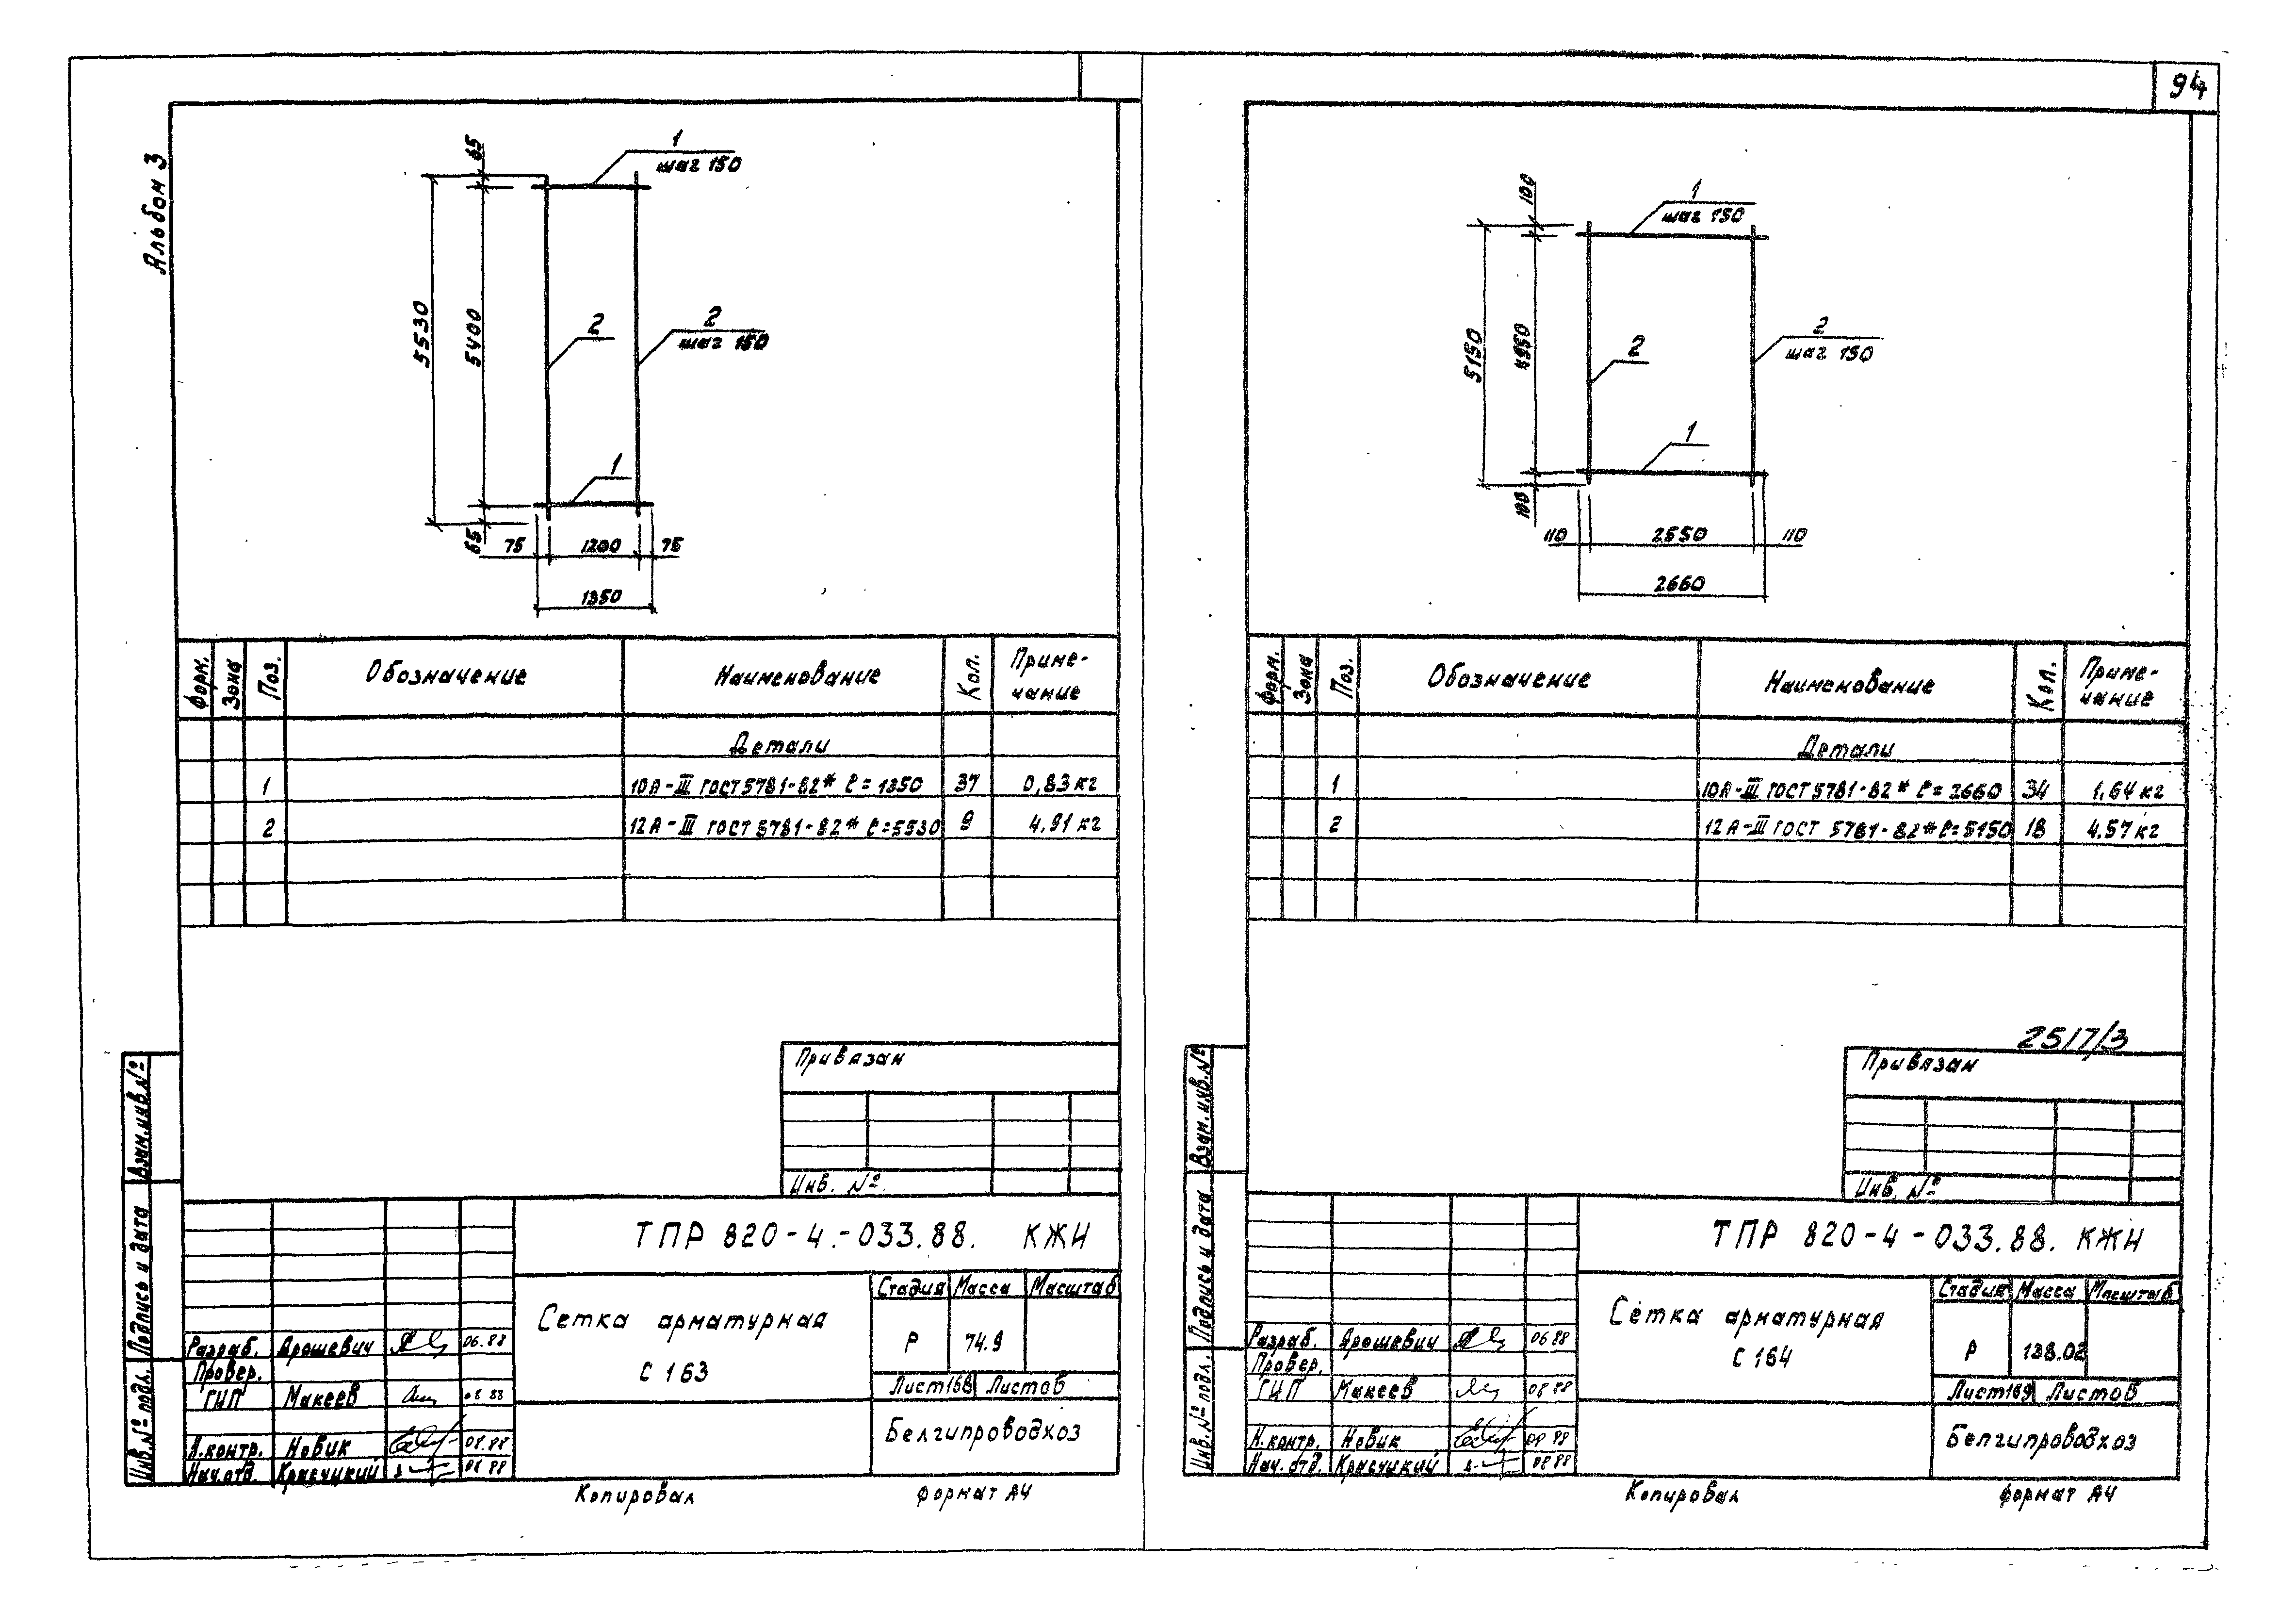 94
Альбом 3
1
шаг 150
65
5530
5400
2
2
шаг 150
1
65
75 1200 75
1350
Форм. Зона Поз. Обозначение Наименование Кол. Приме-
чание
Детали
1 10А-III ГОСТ 5781-82* ℓ=1350 37 0,83 кг
2 12А-III ГОСТ 5781-82* ℓ=5530 9 4,91 кг
Привязан
Инв. №
ТПР 820-4-033.88. КЖИ
Сетка арматурная
С 163
Стадия Масса Масштаб
Р 74.9
Лист 168 Листов
Белгипроводхоз
Разраб. Ярошевич 06.88
Провер.
ГИП Макеев 08.88
Н.контр. Новик 08.88
Нач.отд. 08.88
Взам.инв.№
Подпись и дата
Инв.№ подл.
Копировал формат А4
1
шаг 150
100
5150
4950
2
2
шаг 150
1
100
110 2550 110
2660
Форм. Зона Поз. Обозначение Наименование Кол. Приме-
чание
Детали
1 10А-III ГОСТ 5781-82* ℓ=2660 34 1,64 кг
2 12А-III ГОСТ 5781-82* ℓ=5150 18 4.57 кг
2517/3
Привязан
Инв. №
ТПР 820-4-033.88. КЖИ
Сетка арматурная
С 164
Стадия Масса Масштаб
Р 138.02
Лист 169 Листов
Белгипроводхоз
Разраб. Ярошевич 06.88
Провер.
ГИП Макеев 08.88
Н.контр. Новик 08.88
Нач.отд. 08.88
Взам.инв.№
Подпись и дата
Инв.№ подл.
Копировал формат А4